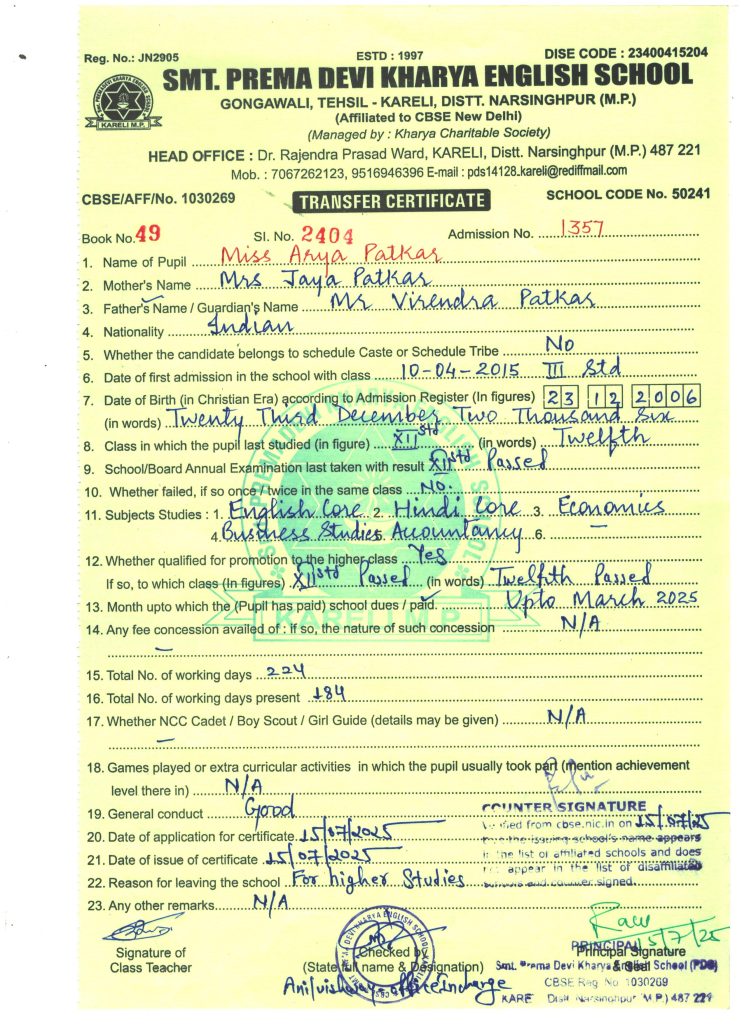 Reg. No.: JN2905
ESTD : 1997
DISE CODE : 23400415204
SMT. PREMA DEVI KHARYA ENGLISH SCHOOL
GONGAWALI, TEHSIL - KARELI, DISTT. NARSINGHPUR (M.P.)
(Affiliated to CBSE New Delhi)
(Managed by : Kharya Charitable Society)
KARELI M.P.
HEAD OFFICE : Dr. Rajendra Prasad Ward, KARELI, Distt. Narsinghpur (M.P.) 487 221
Mob. : 7067262123, 9516946396 E-mail : pds14128.kareli@rediffmail.com
CBSE/AFF/No. 1030269
TRANSFER CERTIFICATE
SCHOOL CODE No. 50241
Book No. 49 Sl. No. 2404 Admission No. 1357
1. Name of Pupil Miss Arya Patkar
2. Mother's Name Mrs Jaya Patkar
3. Father's Name / Guardian's Name Mr Virendra Patkar
4. Nationality Indian
5. Whether the candidate belongs to schedule Caste or Schedule Tribe No
6. Date of first admission in the school with class 10-04-2015 III Std
7. Date of Birth (in Christian Era) according to Admission Register (In figures) 23 12 2006
(in words) Twenty Third December Two Thousand Six
8. Class in which the pupil last studied (in figure) XII std (in words) Twelfth
9. School/Board Annual Examination last taken with result XII std Passed
10. Whether failed, if so once / twice in the same class No.
11. Subjects Studies : 1. English Core 2. Hindi Core 3. Economics
4. Business Studies 5. Accountancy 6. —
12. Whether qualified for promotion to the higher class Yes
If so, to which class (In figures) XII std Passed (in words) Twelfth Passed
13. Month upto which the (Pupil has paid) school dues / paid. Upto March 2025
14. Any fee concession availed of : if so, the nature of such concession N/A
—
KARELI M.P.
15. Total No. of working days 224
16. Total No. of working days present 184
17. Whether NCC Cadet / Boy Scout / Girl Guide (details may be given) N/A
—
18. Games played or extra curricular activities in which the pupil usually took part (mention achievement
level there in) N/A
19. General conduct Good
20. Date of application for certificate 15/07/2025
21. Date of issue of certificate 15/07/2025
22. Reason for leaving the school For higher Studies
23. Any other remarks N/A
COUNTER SIGNATURE
Verified from cbse.nic.in on 15/07/25
the issuing school's name appears
in the list of affiliated schools and does
not appear in the list of disaffiliated
schools and counter signed.
Signature of
Class Teacher
Checked by
(State full name & Designation)
office Incharge
15/7/25
PRINCIPAL
Principal Signature
& Seal
Smt. Prema Devi Kharya English School (PDS)
CBSE Reg No 1030269
KARE Distt. Narsinghpur (M.P.) 487 221